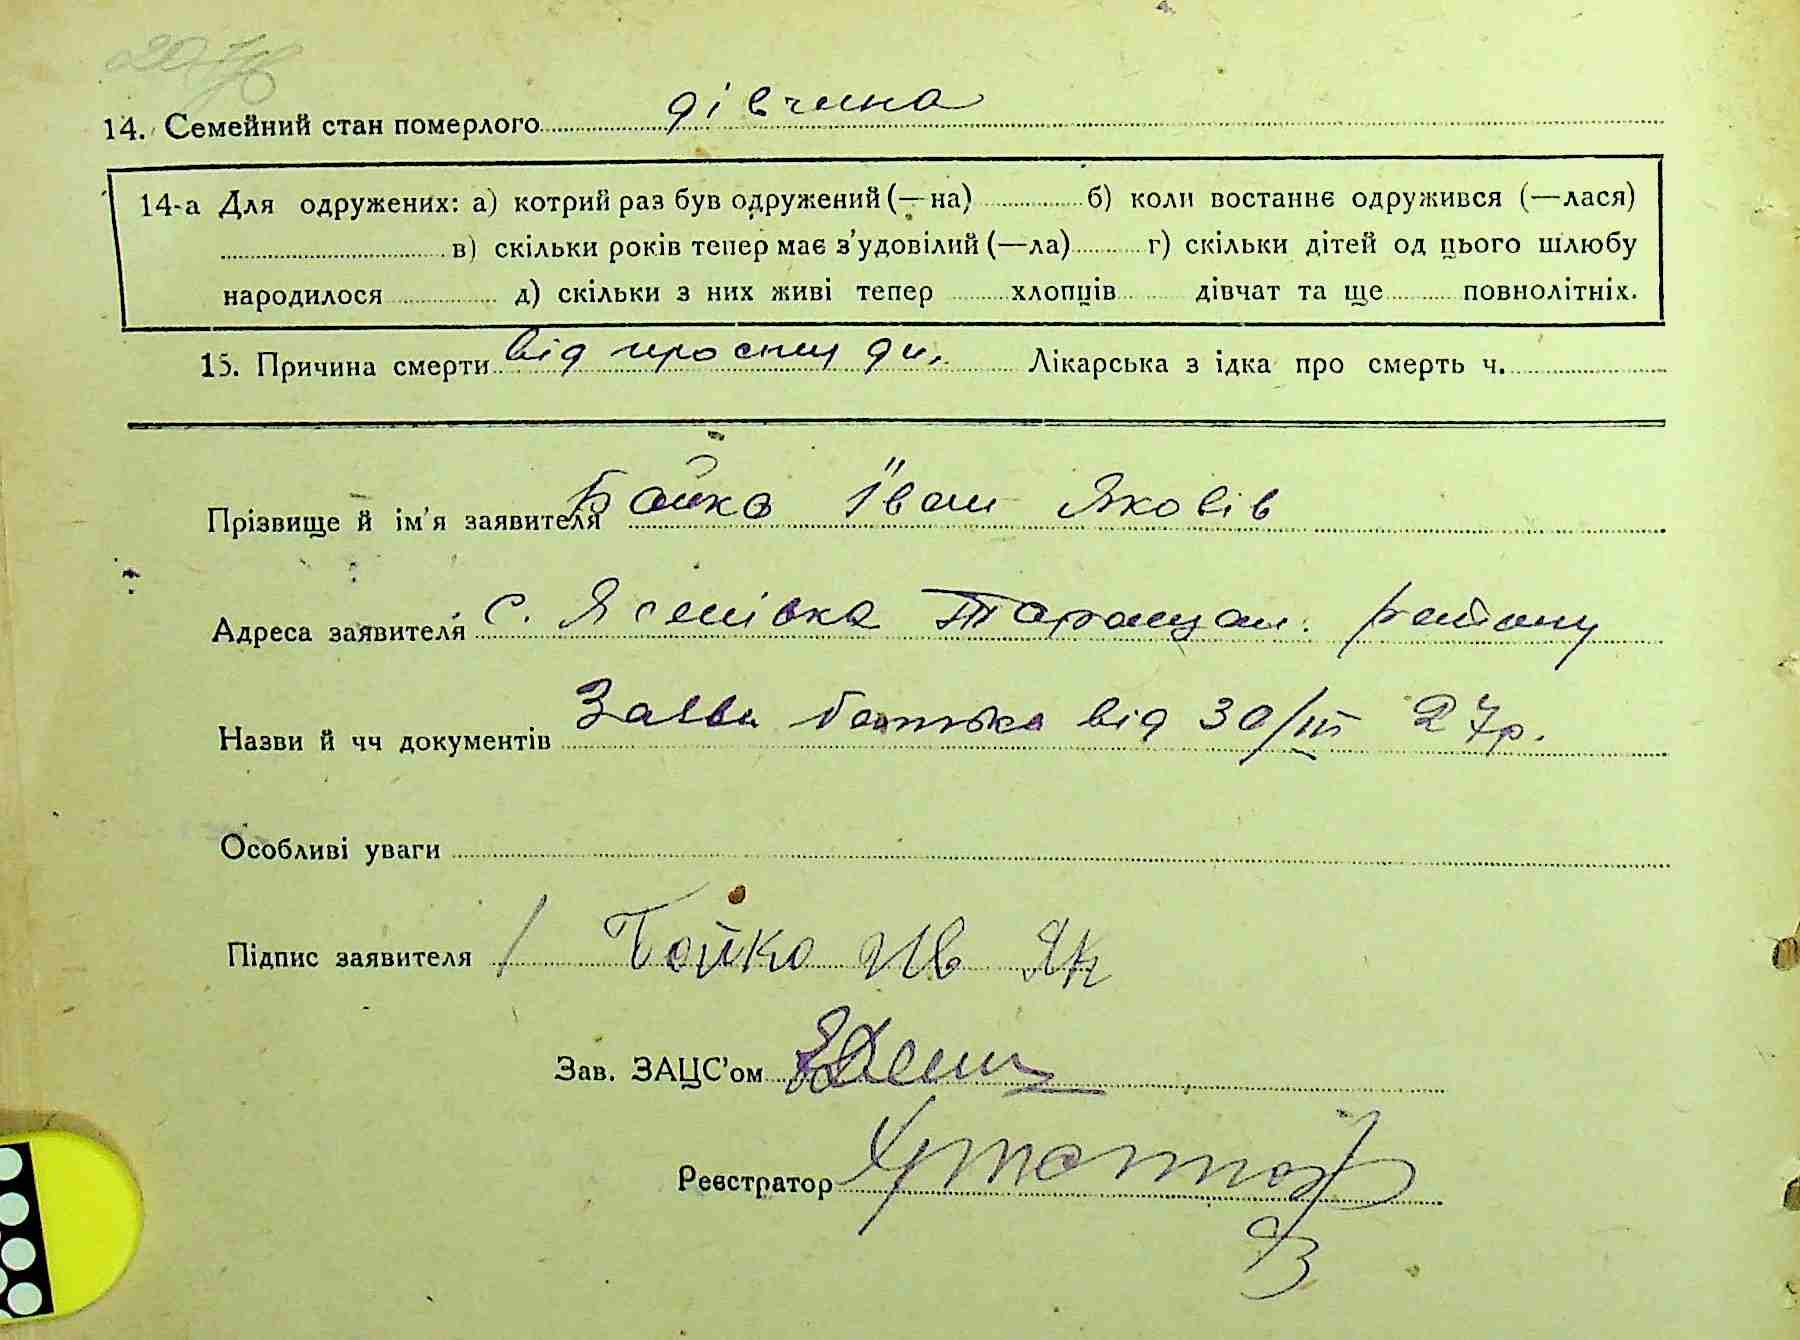 14. Семейний стан померлого дівчина
14-а Для одружених: а) котрий раз був одружений (—на) б) коли востаннє одружився (—лася)
в) скільки років тепер має з’удовілий (—ла) г) скільки дітей од цього шлюбу
народилося д) скільки з них живі тепер хлопців дівчат та ще повнолітніх.
15. Причина смерти від простуди. Лікарська з ідка про смерть ч.
Прізвище й ім’я заявителя Бойко Іван Яковів
Адреса заявителя с. Ясенівка Таращан. району
Назви й чч документів Заява батька від 30/III 27р.
Особливі уваги
Підпис заявителя / Бойко Ив Як
Зав. ЗАЦС’ом
Реєстратор